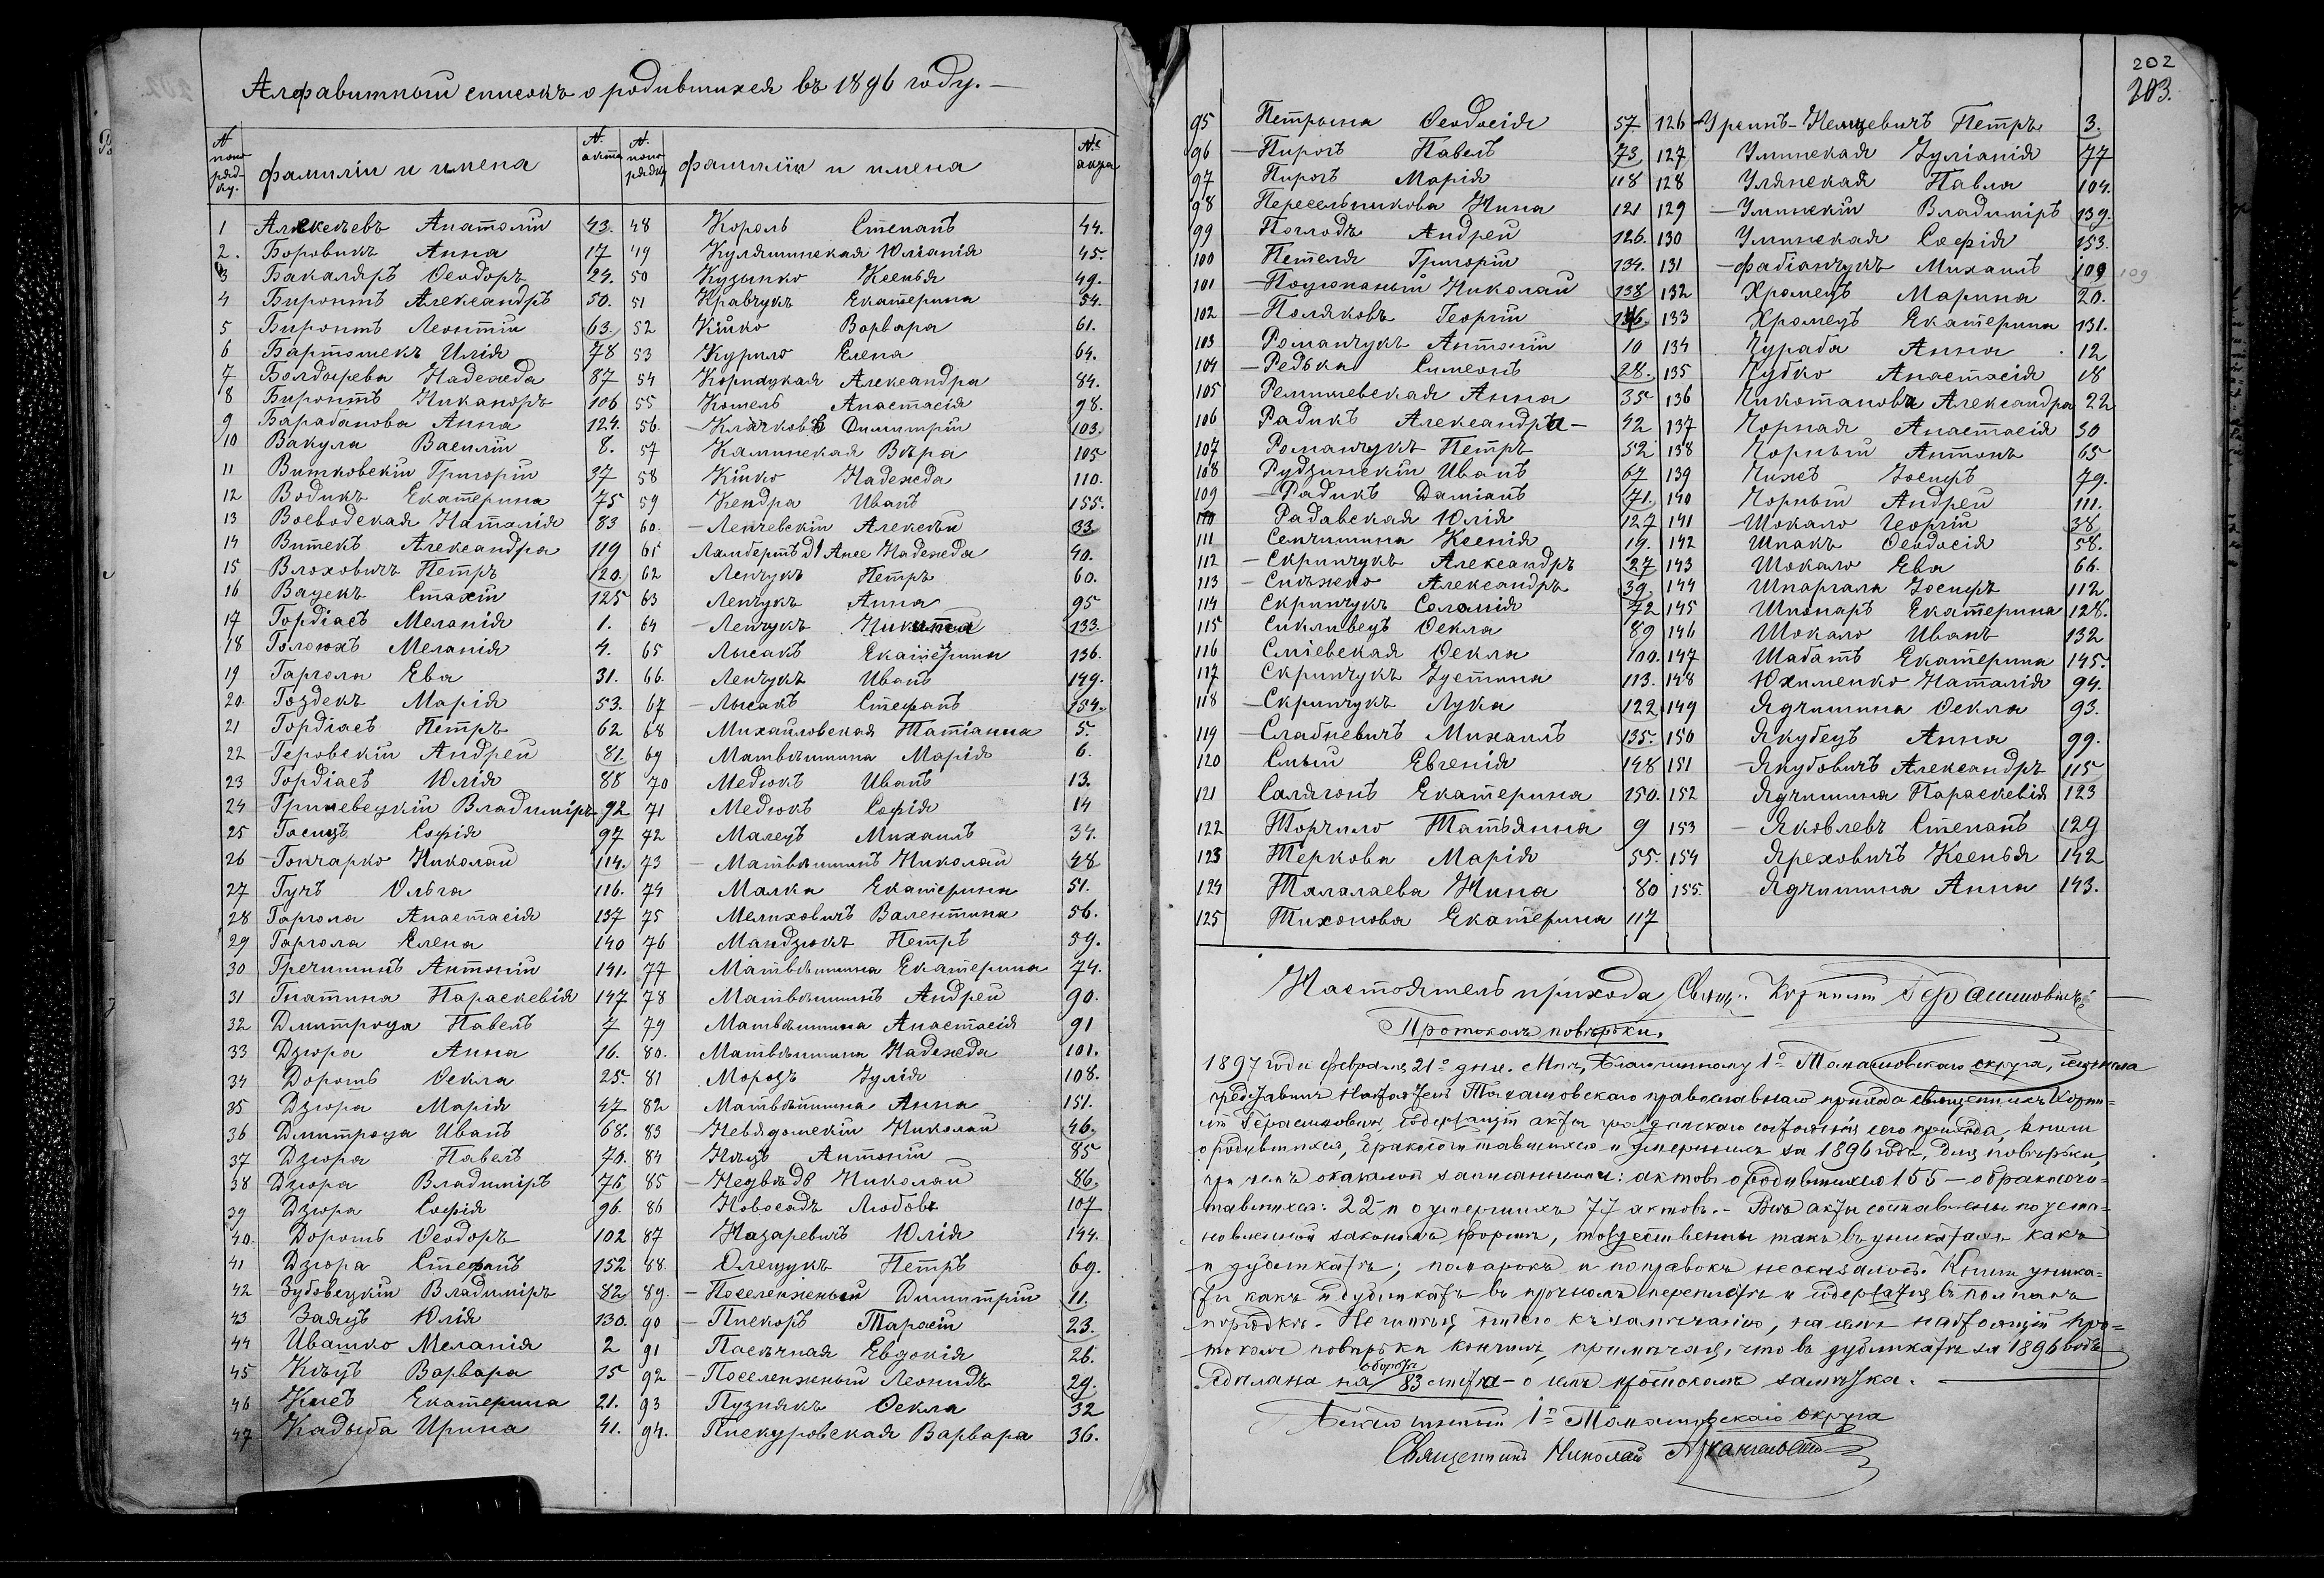 Алфавитный списокъ о родившихся въ 1896 году.
№ поно рядку. фамиліи и имена № акта
1 Алексѣевъ Анатолій 43.
2. Боровикъ Анна 17
3 Бакаляръ Ѳеодоръ 24.
4 Биронтъ Александръ 50.
5 Биронтъ Леонтій 63.
6 Бартошекъ Илія 78
7 Болдырева Надежда 87
8 Биронтъ Никаноръ 106
9 Барабанова Анна 124.
10 Вакула Василій 8.
11 Витковскій Григорій 37
12 Водикъ Екатерина 75
13 Воеводская Наталія 83
14 Витекъ Александра 119
15 Влоховичъ Петръ 120.
16 Вацекъ Стахій 125
17 Гордіасъ Меланія 1.
18 Голоюхъ Меланія 4.
19 Гаргола Ева 31.
20. Гоздекъ Марія 53.
21 Гордіасъ Петръ 62
22 Геровскій Андрей 81.
23 Гордіасъ Юлія 88
24 Гриневецкій Владиміръ 92
25 Гоецъ Софія 97
26 Гончарко Николай 114.
27 Гучъ Ольга 116.
28 Гаргола Анастасія 137
29 Гаргола Елена 140
30 Гречишинъ Антоній 141.
31 Гнатина Параскевія 147
32 Дмитроца Павелъ 7
33 Дзюра Анна 16.
34 Дорошъ Ѳекла 25.
35 Дзюра Марія 47
36 Дмитроца Иванъ 68.
37 Дзюра Павелъ 70.
38 Дзюра Владиміръ 76
39 Дзюра Софія 96.
40. Дорошъ Ѳеодоръ 102
41 Дзюра Стефанъ 152
42 Зубовецкій Владиміръ 82
43 Заяцъ Юлія 130.
44 Ивашко Меланія 2
45 Кѣцъ Варвара 15
46 Кнесъ Екатерина 21.
47 Кадыба Ирина 41.
№ поно рядку фамиліи и имена № акта
48 Король Степанъ 44.
49 Куляшинская Юліанія 45.
50 Кузынко Ксенья 49.
51 Кравчукъ Екатерина 54.
52 Кійко Варвара 61.
53 Курило Елена 64.
54 Корицкая Александра 84.
55 Кошель Анастасія 98.
56. Клячковъ Димитрій 103.
57 Каминская Вѣра 105
58 Кійко Надежда 110.
59 Кендра Иванъ 155.
60. Ленчевскій Алексѣй 33
61 Ламбертъ дʼ Ансе Надежда 40.
62 Ленчукъ Петръ 60.
63 Ленчукъ Анна 95
64 Ленчукъ Никита 133.
65 Лысакъ Екатерина 136.
66. Ленчукъ Иванъ 149.
67 Лысакъ Стефанъ 154.
68 Михайловская Татіанна 5.
69 Матвѣишина Марія 6.
70 Медюкъ Иванъ 13.
71 Медюкъ Софія 14
72 Малецъ Михаилъ 34.
73 Матвѣишинъ Николай 48
74 Малка Екатерина 51.
75 Мелиховичъ Валентина 56.
76 Мандзюкъ Петръ 59.
77 Матвѣишина Екатерина 74.
78 Матвѣишинъ Андрей 90.
79 Матвѣишина Анастасія 91
80. Матвѣишина Надежда 101.
81 Морозъ Іулія 108.
82 Матвѣишина Анна 151.
83 Невядомскій Николай 46.
84 Нецъ Антоній 85
85 Недвѣдь Николай 86.
86 Новосадъ Любовь 107
87 Назаревичъ Юлія 144.
88. Олещукъ Петръ 69.
89. Поселенженый Димитрій 11.
90 Пнекоръ Тарасій 23.
91 Пасѣчная Евдокія 26.
92 Поселенженый Леонидъ 29.
93 Пузнякъ Ѳекла 32
94. Пнекуровская Варвара 36.
202
203.
95 Петрына Ѳеодосія 57
96 Пирогъ Павелъ 73
97 Пирогъ Марія 118
98 Пересельникова Нина 121
99 Поглодъ Андрей 126.
100 Петеля Григорій 134.
101 Николай 138
102 Поляковъ Георгій 146
103 Романчукъ Антоній 10
104 Редька Симеонъ 28.
105 Ремишевская Анна 35
106 Радикъ Александра 42
107 Романчукъ Петръ 52
108 Рудзинскій Иванъ 67
109 Радикъ Даміанъ 71.
110 Радавская Юлія 127
111 Сенчишина Ксенія 19.
112 Скринчукъ Александръ 27
113 Снѣжко Александръ 39.
114 Скринчукъ Соломія 72
115 Сикливецъ Ѳекла 89
116 Сміевская Ѳекла 100.
117 Скринчукъ Іустина 113.
118 Скринчукъ Лука 122
119 Слабневичъ Михаилъ 135.
120 Смый Евгенія 148
121 Салягонъ Екатерина 150.
122 Торчило Татьянна 9
123 Теркова Марія 55.
124 Талалаева Нина 80
125 Тихонова Екатерина 117
126 Урсинъ-Немцевичъ Петръ 3.
127 Улинская Іуліанія 77
128 Улянская Павла 104.
129 Улинскій Владиміръ 139.
130 Улинская Софія 153.
131 Фабіанчукъ Михаилъ 109 109
132 Хромецъ Марина 20.
133 Хромецъ Екатерина 131.
134 Цурада Анна 12
135 Чубко Анастасія 18
136 Чикотанова Александра 22
137 Чорная Анастасія 30
138 Чорный Антонъ 65
139 Чижъ Іосифъ 79.
140 Чорный Андрей 111.
141 Шокало Георгій 38
142 Шпакъ Ѳеодосія 58.
143 Шокало Ева 66.
144 Шпаргала Іосифъ 112
145 Шпонаръ Екатерина 128.
146 Шокало Иванъ 132
147 Шабатъ Екатерина 145.
148 Юхименко Наталія 94.
149 Ядчишина Ѳекла 93.
150 Якубецъ Анна 99.
151 Якубовичъ Александръ 115
152 Ядчишина Параскевія 123
153 Яковлевъ Степанъ 129
154 Яреховичъ Ксенья 142
155. Ядчишина Анна 143.
Настоятель прихода Свящ. Корнилій Герасимовичъ
Протоколъ повѣрки.
1897 года февраля 21о дня. Мнѣ, Благочинному 1о Томашовскаго округа,
представилъ Настоятель Томашовскаго православнаго прихода священникъ Корни=
лій Герасимовичъ, акты гражданскаго состоянія сего прихода, книги
о родившихся, бракосочетавшихся и умершихъ за 1896 годъ, для повѣрки,
при чемъ оказалось записанными: актовъ о родившихся 155 – о бракосоче=
тавшихся: 22 и о умершихъ 77 актовъ. – Всѣ акты составлены по уста=
новленной закономъ формѣ, тождественны какъ въ уникатахъ какъ
и дубликатѣ; помарокъ и поправокъ не оказалось. Книги уника=
ты какъ и дубликатъ въ прочномъ переплетѣ и содержатся въ полномъ
порядкѣ. Не имѣя ничего къ замѣчанію, на семъ настоящій про=
токолъ повѣрки кончилъ, примѣчая, что въ дубликатѣ за 1896 годъ
сдѣлана на оборотѣ 83 листа – о семъ протоколѣ замѣтка.
Благочинный 1о Томашовскаго округа
Священникъ Николай